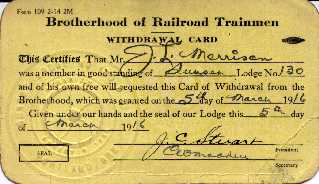 Form 109 2-14 2M
Brotherhood of Railroad Trainmen
WITHDRAWAL CARD
This Certifies That Mr. J. L. Merrison
was a member in good standing of Lodge No. 130
and of his own free will requested this Card of Withdrawal from the
Brotherhood, which was granted on the 5th day of March 1916
Given under our hands and the seal of our Lodge this 5th day
of March 1916
J. E. Stewart
President
SEAL
Secretary